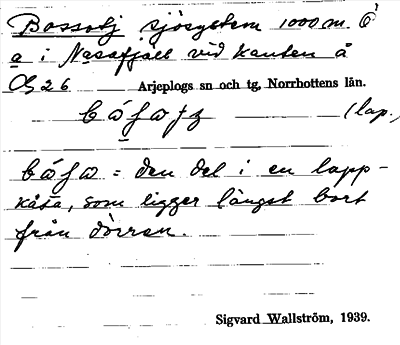 Bossotj sjösystem 1000 m. Ö
a i Nasafjäll vid kanten å
26 Arjeplogs sn och tg, Norrbottens län.
(lap.)
= den del i en lapp-
kåta, som ligger längst bort
från dörren.
Sigvard Wallström, 1939.